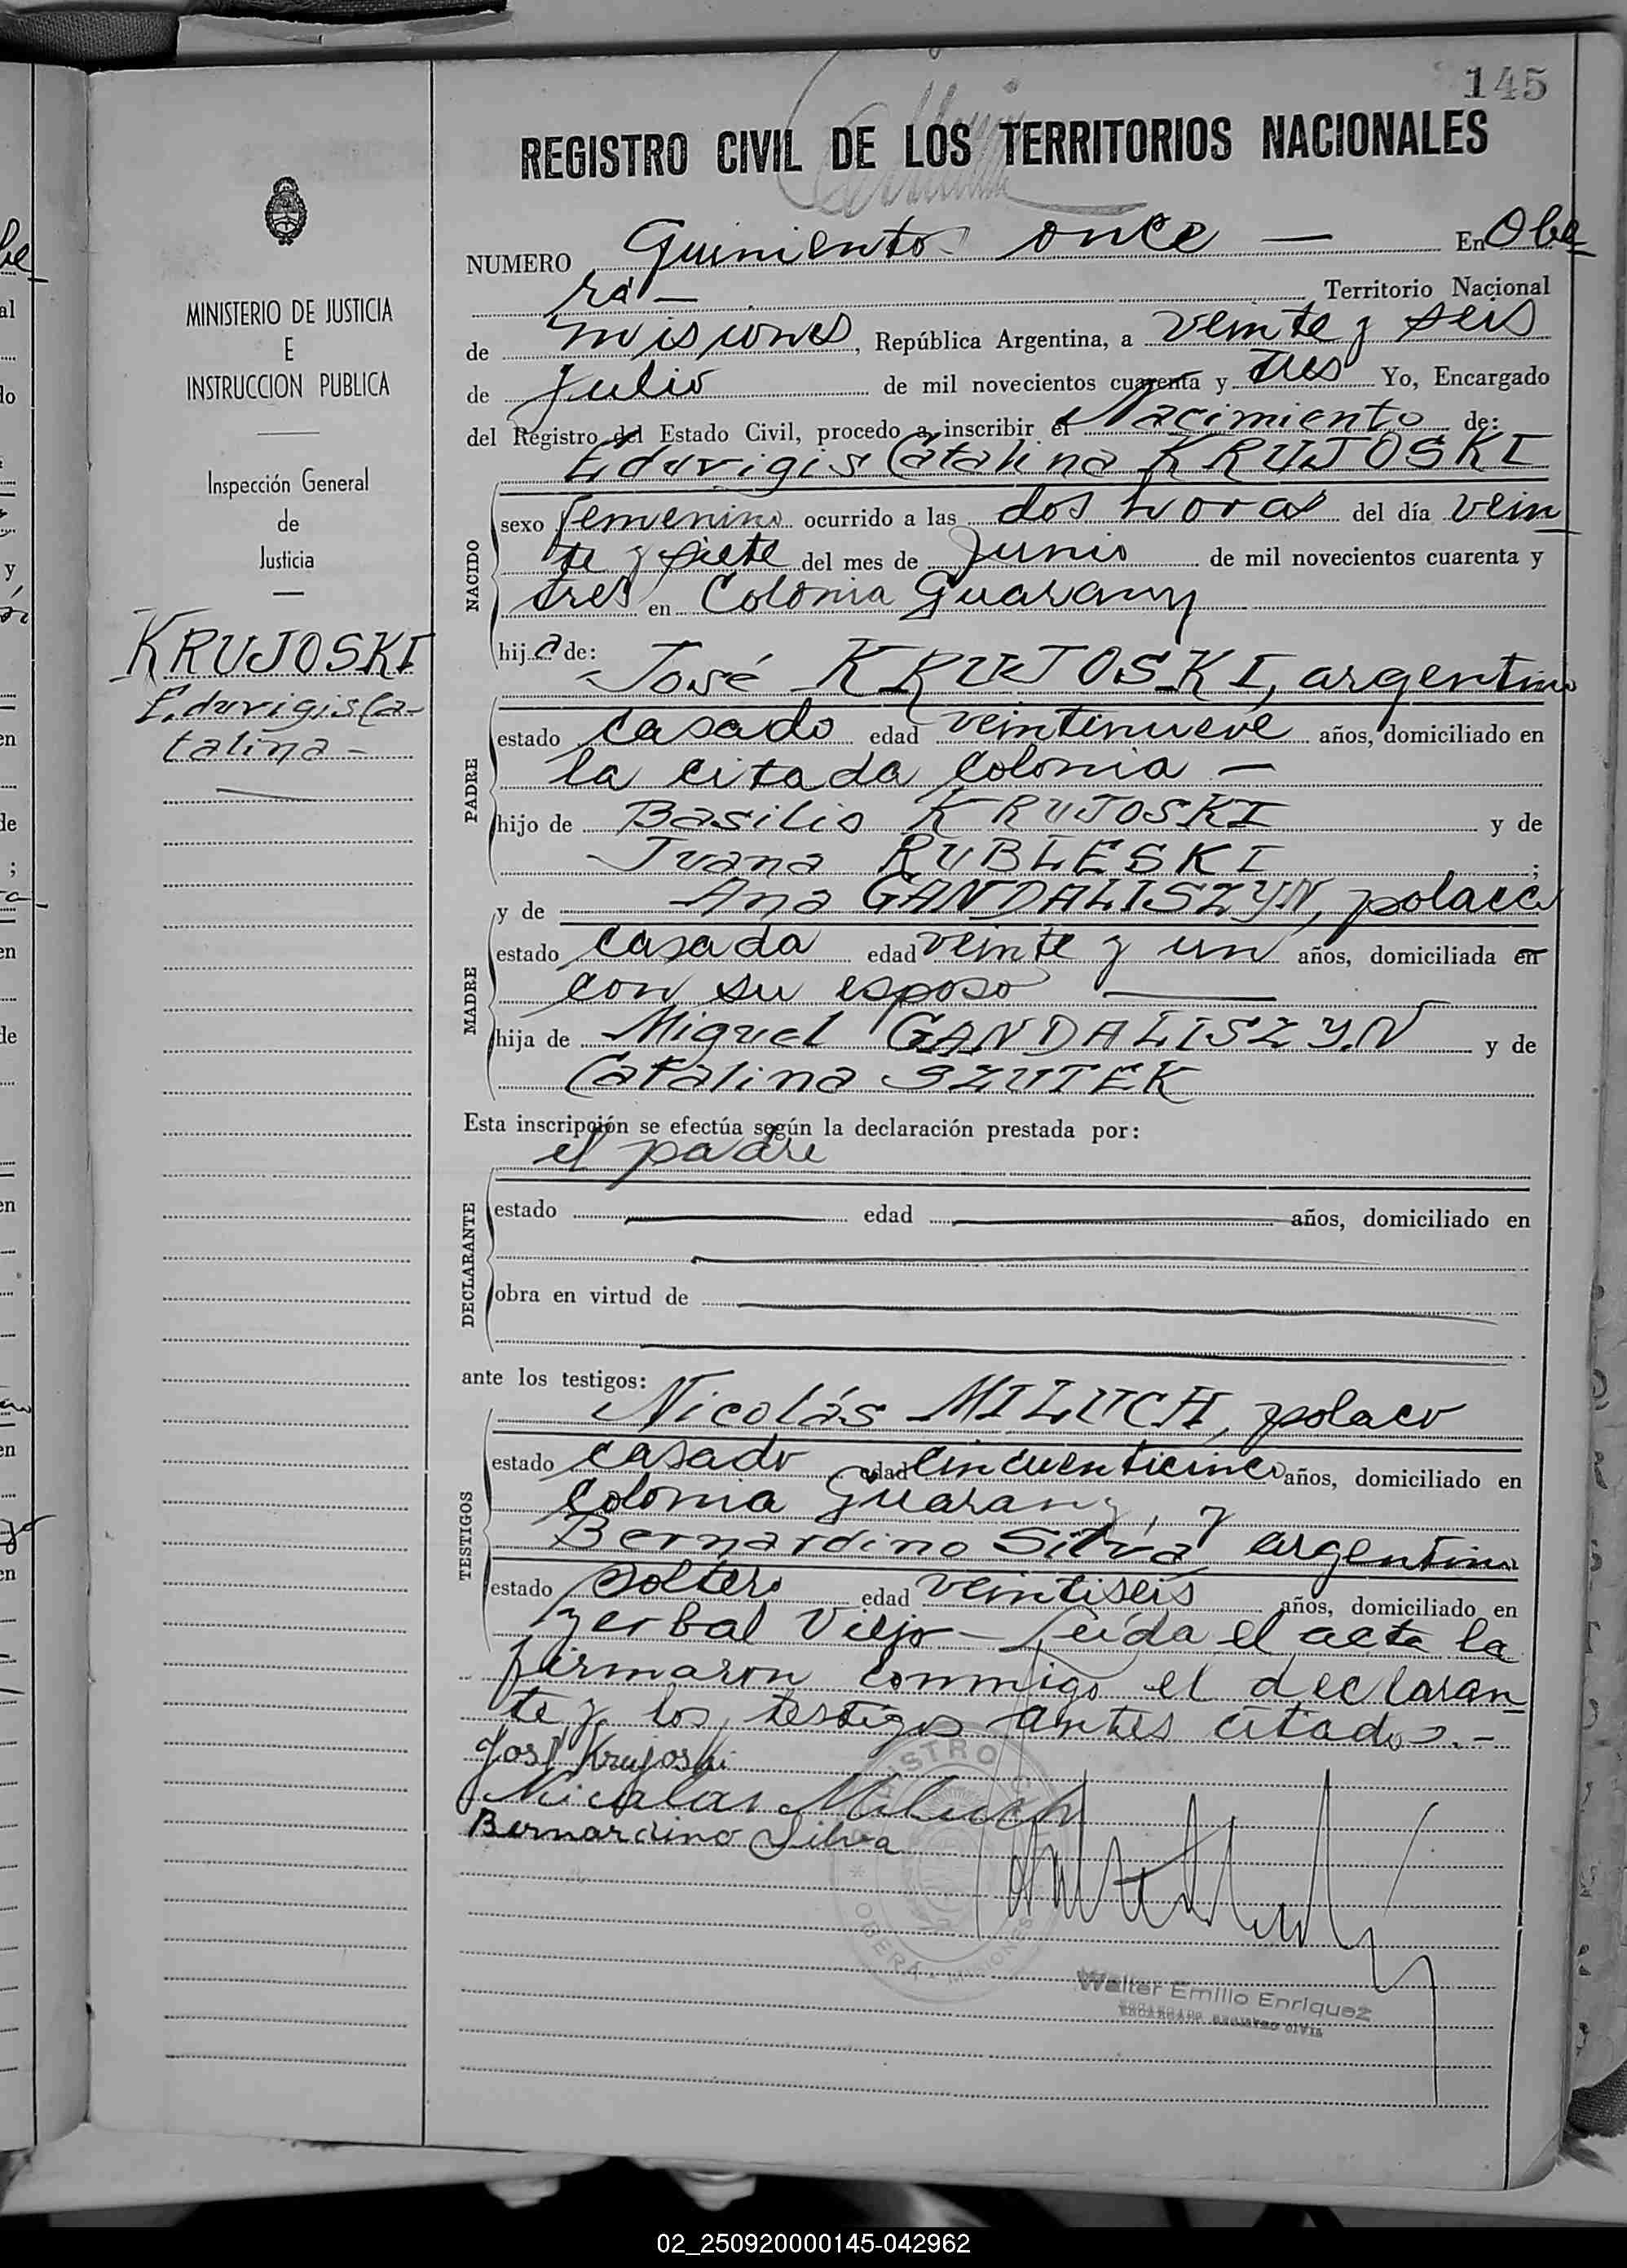 145
REGISTRO CIVIL DE LOS TERRITORIOS NACIONALES
MINISTERIO DE JUSTICIA
E
INSTRUCCION PUBLICA
Inspección General
de
Justicia
KRUJOSKI
Eduvigis Ca-
talina -
NUMERO Quinientos once — En Obe
rá — Territorio Nacional
de Misiones, República Argentina, a veinte y seis
de Julio de mil novecientos cuarenta y tres Yo, Encargado
del Registro del Estado Civil, procedo a inscribir el Nacimiento de:
Eduvigis Catalina KRUJOSKI
NACIDO
sexo femenino ocurrido a las dos horas del día vein
te y siete del mes de Junio de mil novecientos cuarenta y
tres en Colonia Guarany
hija de:
José KRUJOSKI, argentino
PADRE
estado casado edad veintinueve años, domiciliado en
la citada colonia —
hijo de Basilio KRUJOSKI y de
Juana RUBLESKI ;
y de Ana GANDALISZYN, polaca
MADRE
estado casada edad veinte y un años, domiciliada en
con su esposo —
hija de Miguel GANDALISZYN y de
Catalina SZUTEK
Esta inscripción se efectúa según la declaración prestada por:
el padre
DECLARANTE
estado edad años, domiciliado en
obra en virtud de
ante los testigos:
Nicolás MILUCH, polaco
TESTIGOS
estado casado edad cincuenticinco años, domiciliado en
Colonia Guarany, y
Bernardino Silva argentino
estado soltero edad veintiseis años, domiciliado en
Yerbal Viejo - Leída el acta la
firmaron conmigo el declaran
te y los testigos antes citados.-
José Krujoski
Nicolas Miluch
Bernardino Silva
REGISTRO
OBERA - MISIONES
Walter Emilio Enriquez
ENCARGADO REGISTRO CIVIL
02_250920000145-042962